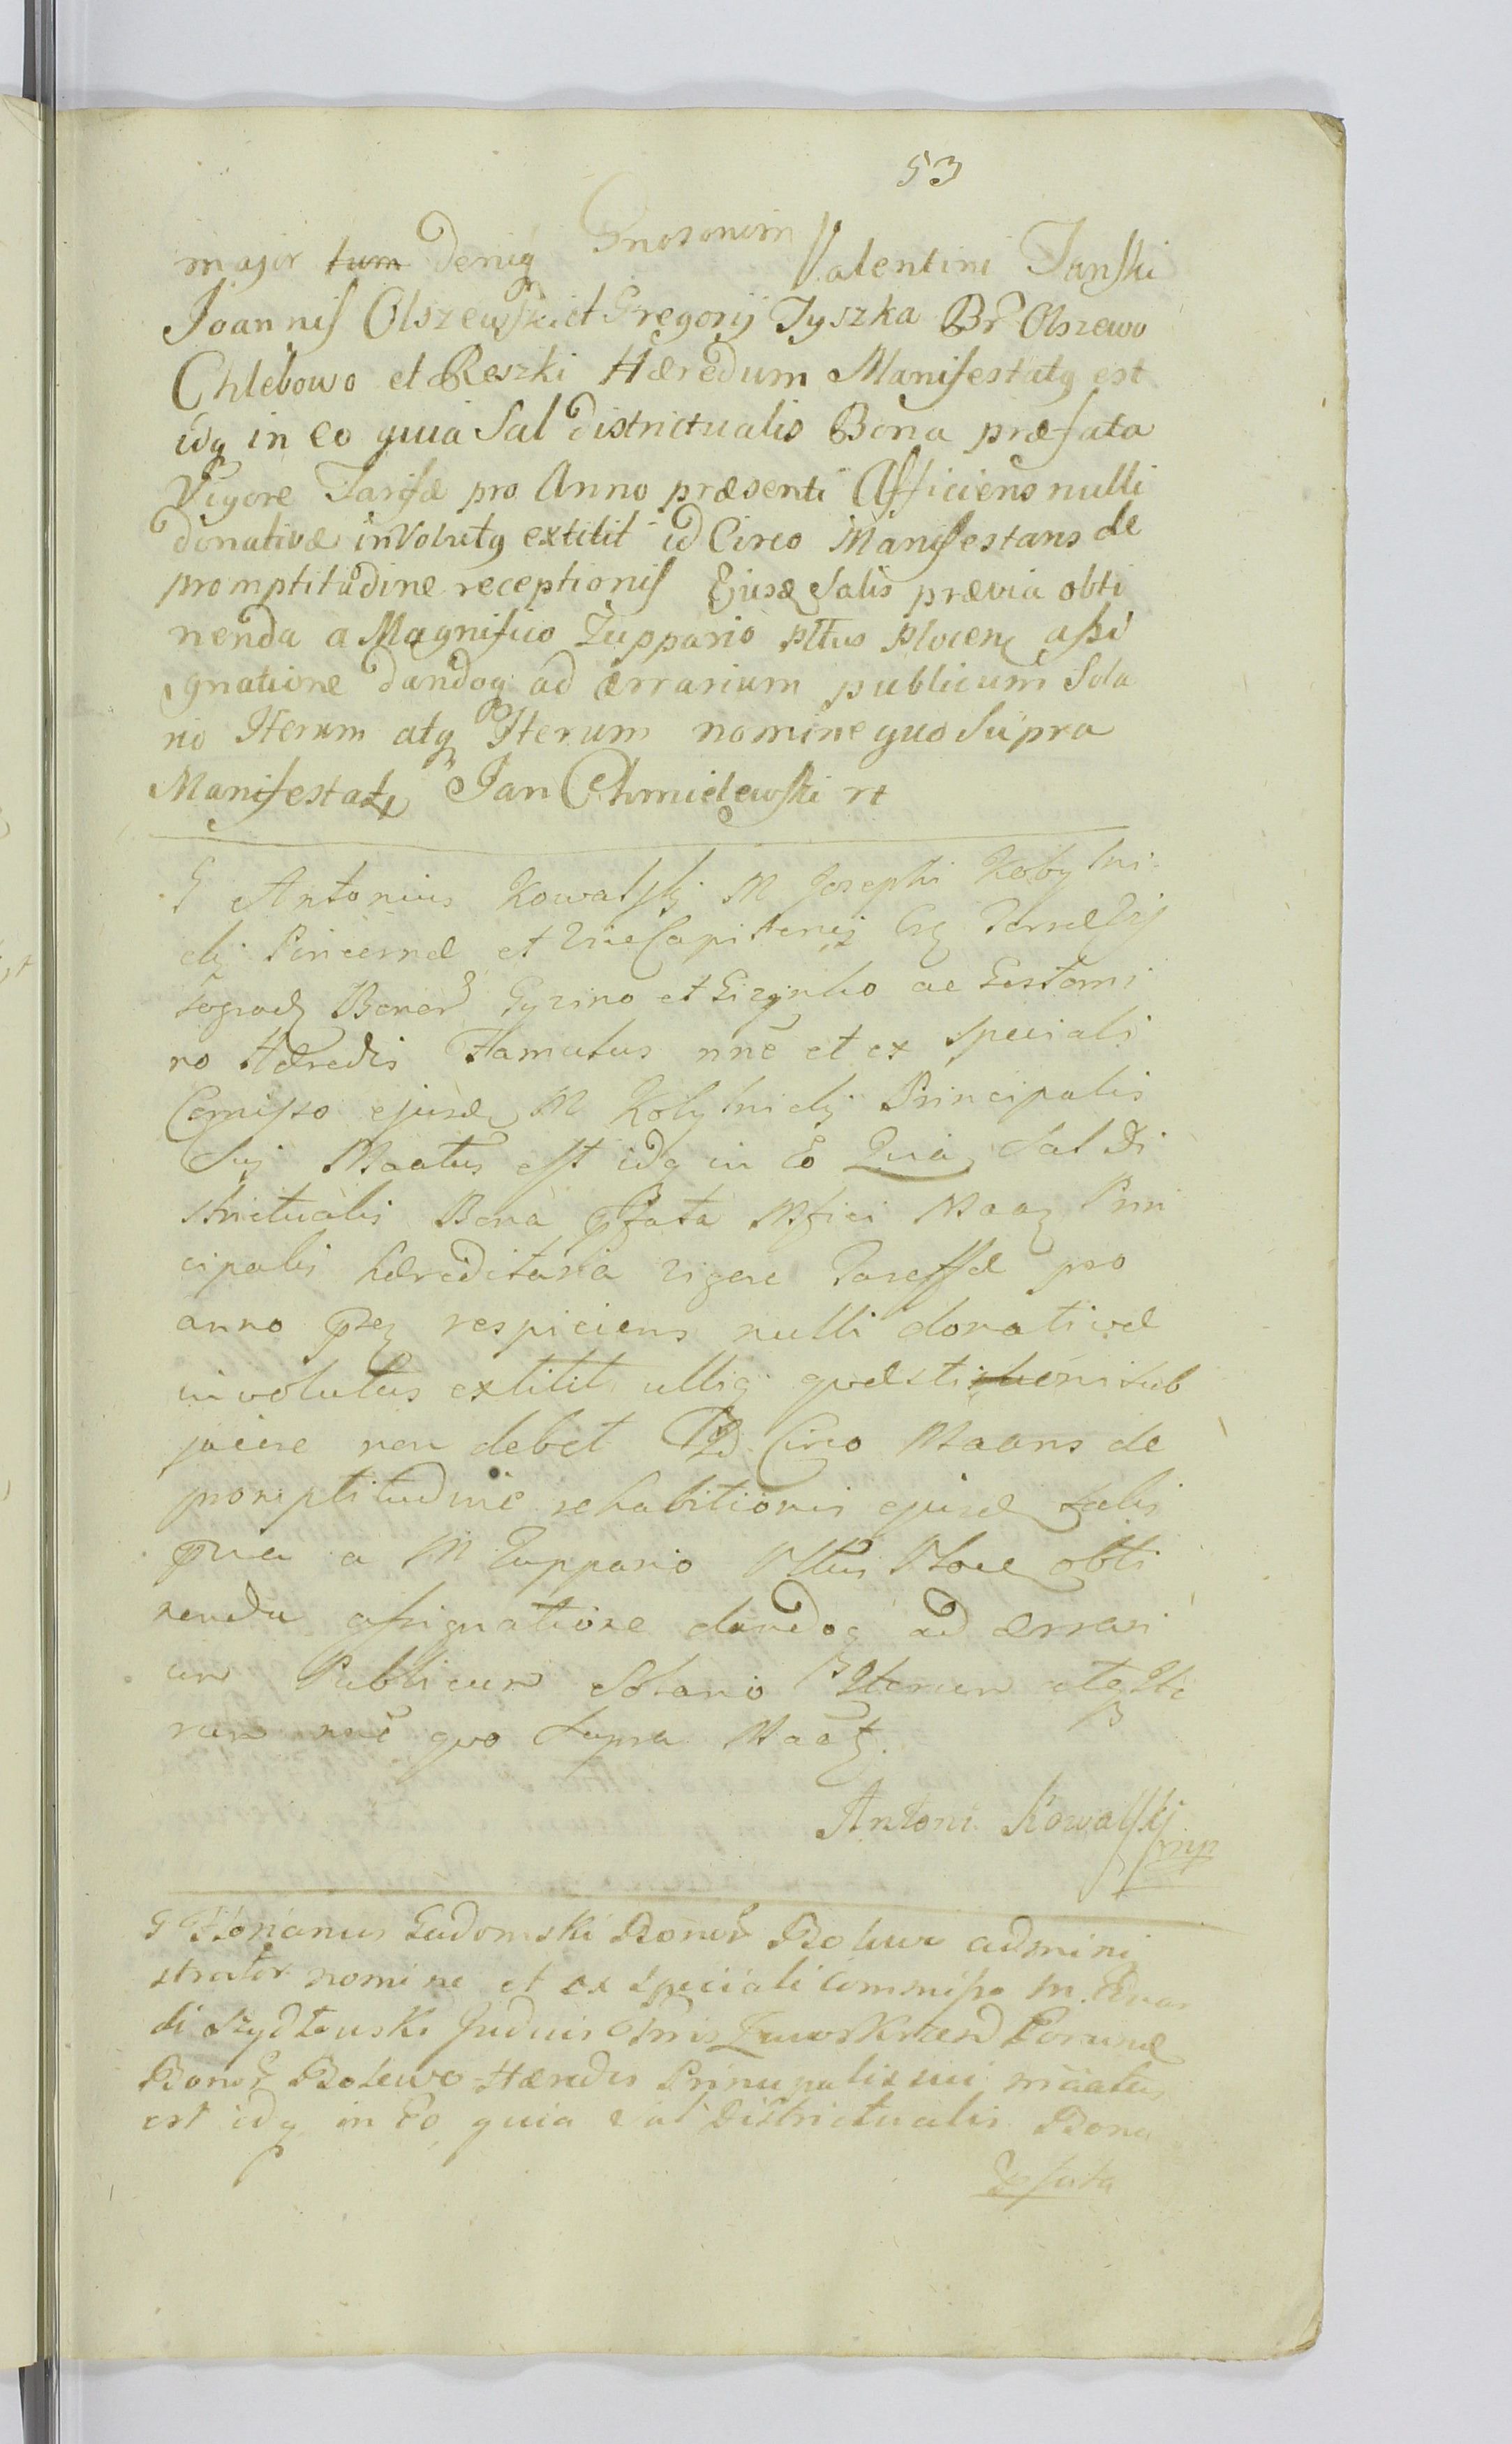 53
major tum deniq Gnosorum Valentini Janski
Joannis Olszewski et Gregorij Tyszka Br Olszewo
Chlebowo et Reszki Hæredum Manifestatq est
idq in eo quia Sal districtualis Bona præfata
Vigore Tarifæ pro Anno præsenti Afficiens nulli
donativæ involutq extitit id Circo Manifestans de
promptitudine receptionis Ejusd Salis prævia obti
nenda a Magnifico Zuppario Pltus Plocen assi
gnatione dandoq ad ærrarium publicum Sola
rio Iterum atq Iterum nomine quo Supra
Manifestatq Jan Chmielewski
G Antonius Kowalskj M Josephi Kobylni
clij Pincernæ et ViceCapitanej Terræ Vy
szogrod Bonor et ac
ro Hæredis Famulus nne et ex Speciali
Comisso ejusd M Kobylniclij Principalis
Suj Maatus est idq in Eo Quia Sal Di
strictualis Bona pfata Mfici Maaq Prin
cipalis hæreditaria vigore Tareffæ pro
anno præ respiciens nulli donativæ
involutus extitit ulliq quæstioni sub
jacere non debet Id Circo Maans de
promptitudine rehabitionis ejusd Salis
prvia a M Zuppario Pltus Ploce obti
nenda assignatione dandoq ad ærrari
um Publicum Solario Iterum atq Ite
rum nne quo Supra Maatq
Antoni Kowalskj
mp
G Floryanus Gadomski Bonor Bolewo admini
strator nomine et ex Speciali Commisso M.
di Szydłowski Judicis
Bonor Bolewo Hæredis Principalis sui maatus
est idq in Eo quia Sal Districtualis Bona
pfata